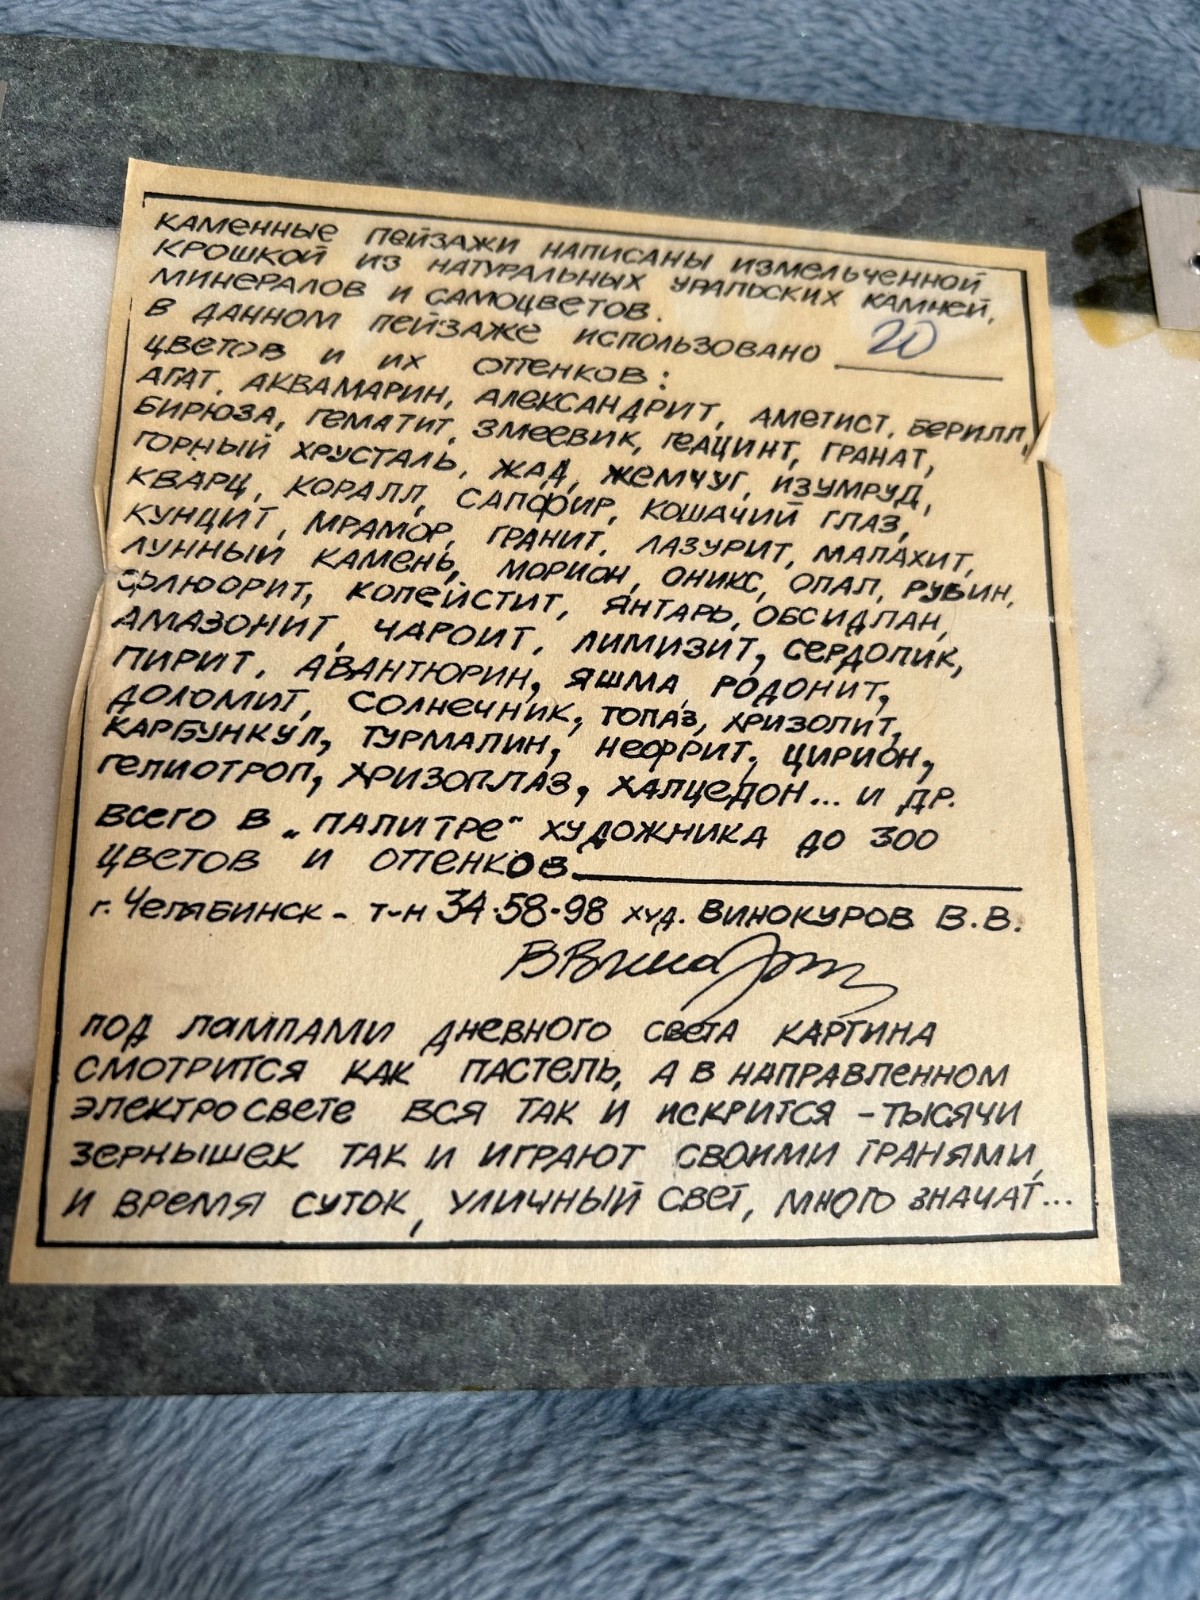 КАМЕННЫЕ ПЕЙЗАЖИ НАПИСАНЫ ИЗМЕЛЬЧЕННОЙ
КРОШКОЙ ИЗ НАТУРАЛЬНЫХ УРАЛЬСКИХ КАМНЕЙ,
МИНЕРАЛОВ И САМОЦВЕТОВ.
В ДАННОМ ПЕЙЗАЖЕ ИСПОЛЬЗОВАНО 20
ЦВЕТОВ И ИХ ОТТЕНКОВ:
АГАТ, АКВАМАРИН, АЛЕКСАНДРИТ, АМЕТИСТ, БЕРИЛЛ,
БИРЮЗА, ГЕМАТИТ, ЗМЕЕВИК, ГЕАЦИНТ, ГРАНАТ,
ГОРНЫЙ ХРУСТАЛЬ, ЖАД, ЖЕМЧУГ, ИЗУМРУД,
КВАРЦ, КОРАЛЛ, САПФИР, КОШАЧИЙ ГЛАЗ,
КУНЦИТ, МРАМОР, ГРАНИТ, ЛАЗУРИТ, МАЛАХИТ,
ЛУННЫЙ КАМЕНЬ, МОРИОН, ОНИКС, ОПАЛ, РУБИН,
ФЛЮОРИТ, КОПЕЙСТИТ, ЯНТАРЬ, ОБСИДПАН,
АМАЗОНИТ, ЧАРОИТ, ЛИМИЗИТ, СЕРДОЛИК,
ПИРИТ, АВАНТЮРИН, ЯШМА, РОДОНИТ,
ДОЛОМИТ, СОЛНЕЧНИК, ТОПАЗ, ХРИЗОЛИТ,
КАРБУНКУЛ, ТУРМАЛИН, НЕФРИТ, ЦИРИОН,
ГЕЛИОТРОП, ХРИЗОПЛАЗ, ХАЛЦЕДОН... И ДР.
ВСЕГО В „ПАЛИТРЕ" ХУДОЖНИКА ДО 300
ЦВЕТОВ И ОТТЕНКОВ
г. ЧЕЛЯБИНСК - Т-Н 34-58-98 ХУД. ВИНОКУРОВ В.В.
ПОД ЛАМПАМИ ДНЕВНОГО СВЕТА КАРТИНА
СМОТРИТСЯ КАК ПАСТЕЛЬ, А В НАПРАВЛЕННОМ
ЭЛЕКТРОСВЕТЕ ВСЯ ТАК И ИСКРИТСЯ - ТЫСЯЧИ
ЗЕРНЫШЕК ТАК И ИГРАЮТ СВОИМИ ГРАНЯМИ,
И ВРЕМЯ СУТОК, УЛИЧНЫЙ СВЕТ, МНОГО ЗНАЧАТ...